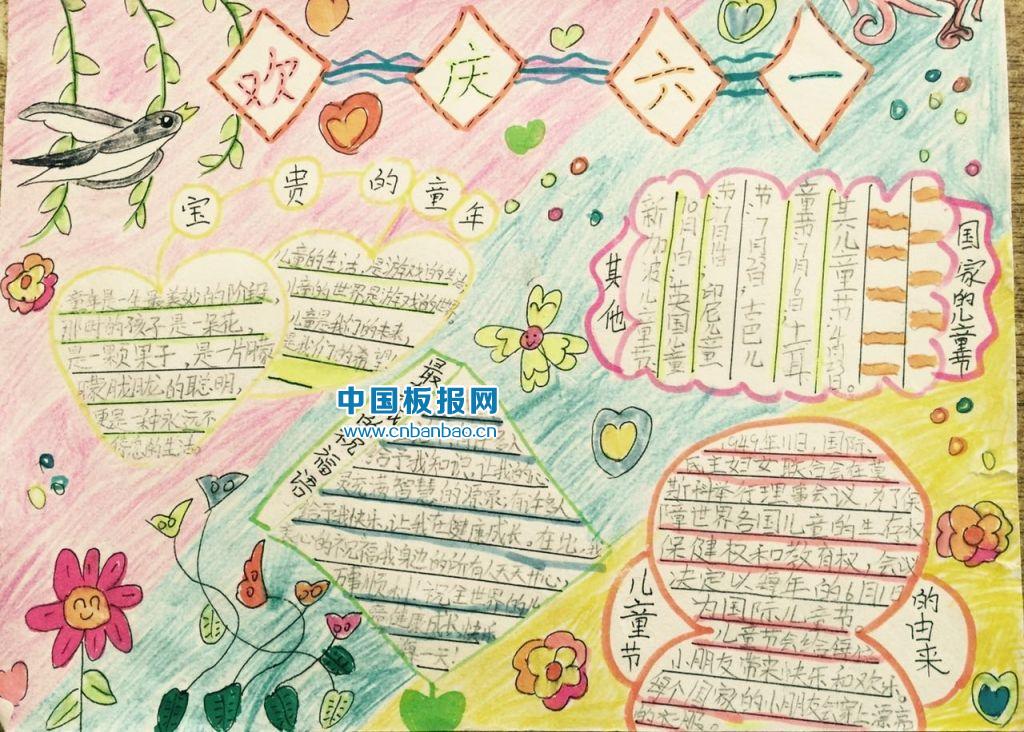 欢庆六一
宝贵的童年
童年是一生最美妙的阶段,
那时的孩子是一朵花,
是一颗果子,是一片朦
朦胧胧的聪明,
更是一种永远不
儿童的生活是游戏的生活,
儿童的世界是游戏的世界。
儿童是我们的未来,
是我们的希望!
其他国家的儿童节
新加波儿童节
10月1日,英国儿童
节7月14,印尼儿童
节7月23日,古巴儿
童节7月6日,土耳
其儿童节4月23日。
中国板报网
www.cnbanbao.cn
祝福语
给予我知识,让我的
智慧的源泉,有许多人
给予我快乐,让我在健康成长。在此,
心的祝福我身边的所有人天天开心,
万事顺利!祝全世界的儿
童健康成长快乐
每一天!
儿童节的由来
1949年11月,国际
民主妇女联合会在莫
斯科举行理事会议,为了保
障世界各国儿童的生存权
保健权和教育权,会议
决定以每年的6月1日
为国际儿童节。
儿童节会给每位
小朋友带来快乐和欢乐。
每个国家的小朋友会穿上漂亮
的衣服。